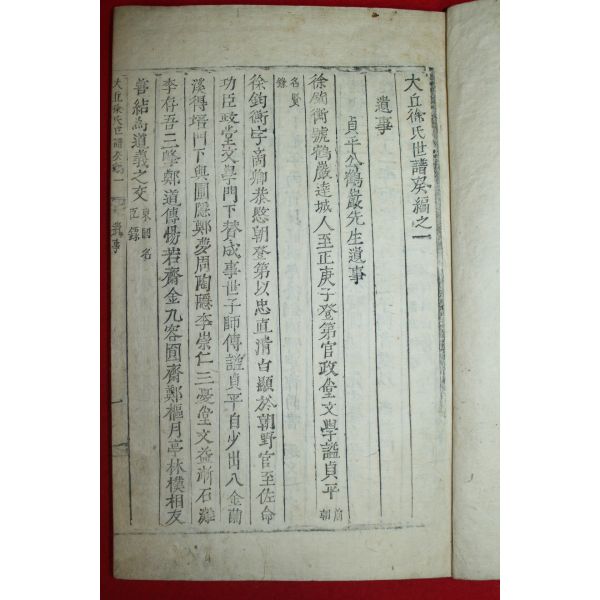 大丘徐氏世譜癸編之一
遺事
貞平公鶴巖先生遺事
徐鈞衡號鶴巖達城人至正庚子登第官政堂文學諡貞平 前朝
名賢錄
徐鈞衡字商卿恭愍朝登第以忠直淸白顯於朝野官至佐命
功臣政堂文學門下贊成事世子師傅諡貞平自少出入金蘭
溪得培門下與圃隱鄭夢周陶隱李崇仁三憂堂文益漸石灘
李存吾三峯鄭道傳惕若齋金九容圓齋鄭樞月亭林樸相友
善結爲道義之交 東國名臣錄
大丘徐氏世譜癸編一 遺事 一